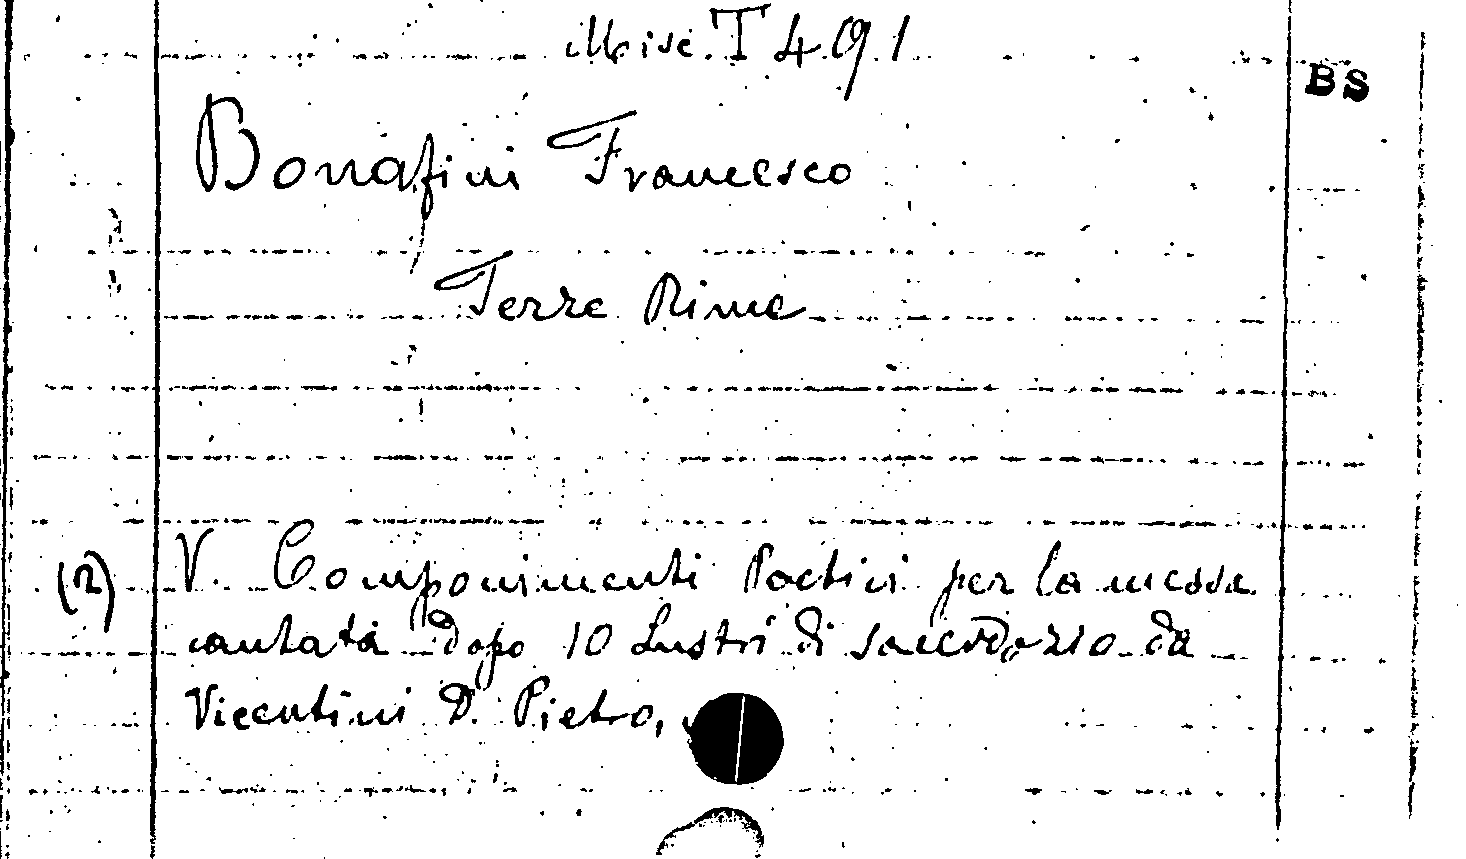 Misc. T 491
BS
Bonafini Francesco
Terze Rime
(2) V. Componimenti Poetici per la messa
cantata dopo 10 Lustri di sacerdozio da
Vicentini D. Pietro,